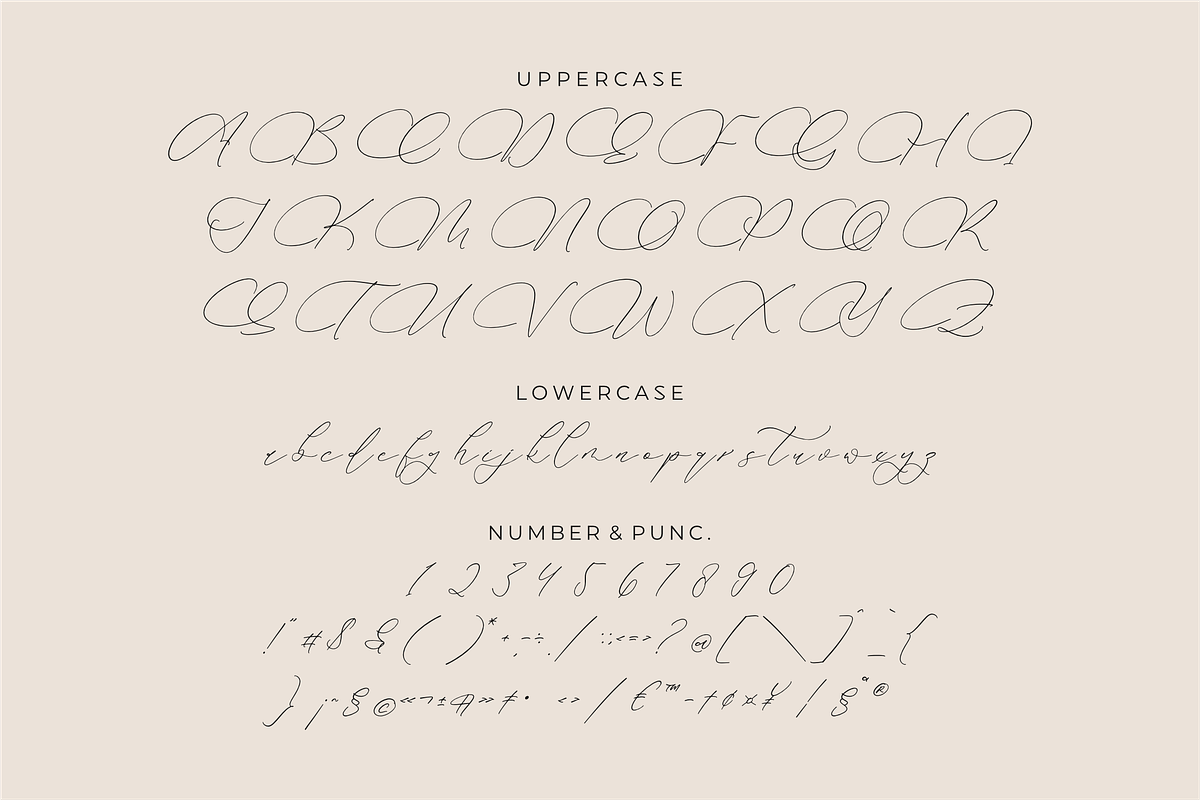 UPPERCASE
A B C D E F G H I
J K M N O P Q R
S T U V W X Y Z
LOWERCASE
abcdefghijklmnopqrstuvwxyz
NUMBER & PUNC.
1 2 3 4 5 6 7 8 9 0
! " # $ & ( ) * + , - ÷ . / : ; < = > ? @ [ \ ] ^ _ ` {
} ¡ ~ § © « ¬ ± » ‡ • ‹ › / € ™ - † ¢ ¤ ¥ | § ª ®